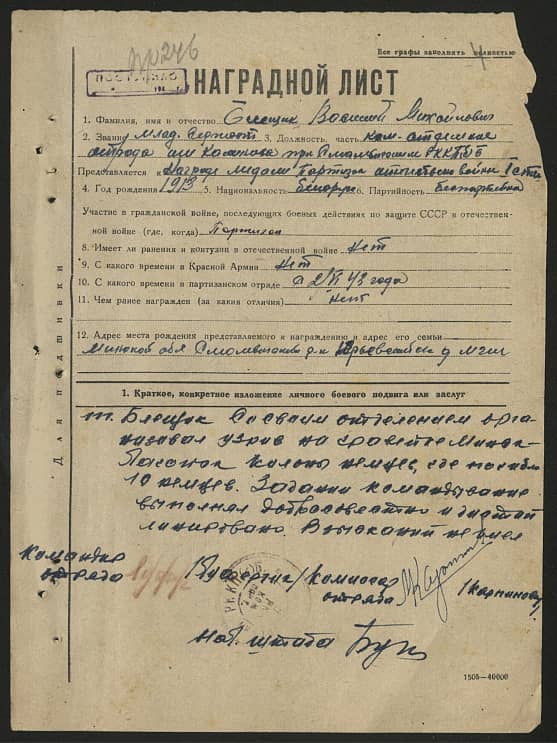 № 246
Все графы заполнять полностью
4
НАГРАДНОЙ ЛИСТ
1. Фамилия, имя и отчество Блещик Василий Михайлович
2. Звание Млад. Сержант 3. Должность, часть ком. отделения
отряда им Калинова при Смолевичском РККПБ
Представляется к Награде медали Партизан отечествен войны
4. Год рождения 1913 5. Национальность Белорус 6. Партийность Беспартейный
Участие в гражданской войне, последующих боевых действиях по защите СССР и отечествен-
ной войне (где, когда) Партизан
8. Имеет ли ранения и контузии в отечественной войне Нет
9. С какого времени в Красной Армии Нет
10. С какого времени в партизанском отряде с 43 года
11. Чем ранее награжден (за какия отличия) Нет
12. Адрес места рождения представляемого к награждению и адрес его семьи
Минской обл Смолевичского р-н
Для подшивки
1. Краткое, конкретное изложение личного боевого подвига или заслуг
т. Блещик Со своим отделением орга-
низовал взрив на Минск-
колоны немцев, где погибло
10 немцев. Задания командывание
выполнял добросовестно и дисцеп
линировано. Взысканий не имел
Командир
отряда
Комиссар
отряда
Нач. штаба
1505—40000